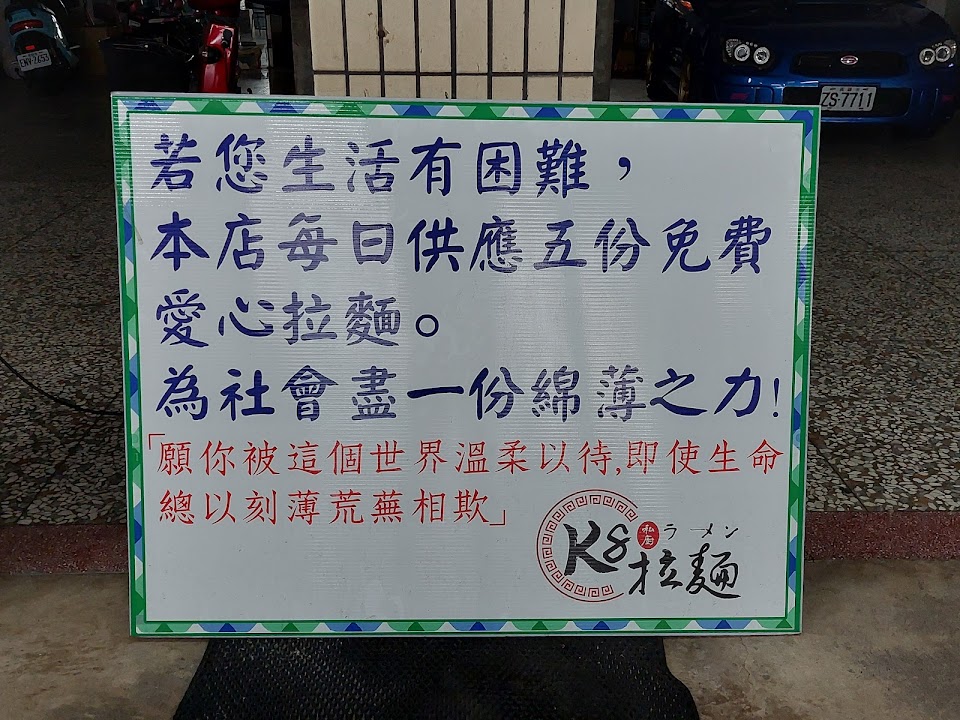 若您生活有困難，
本店每日供應五份免費
愛心拉麵。
為社會盡一份綿薄之力!
「願你被這個世界溫柔以待,即使生命
總以刻薄荒蕪相欺」
K8 私廚 ラーメン
拉麵
ZS-7711